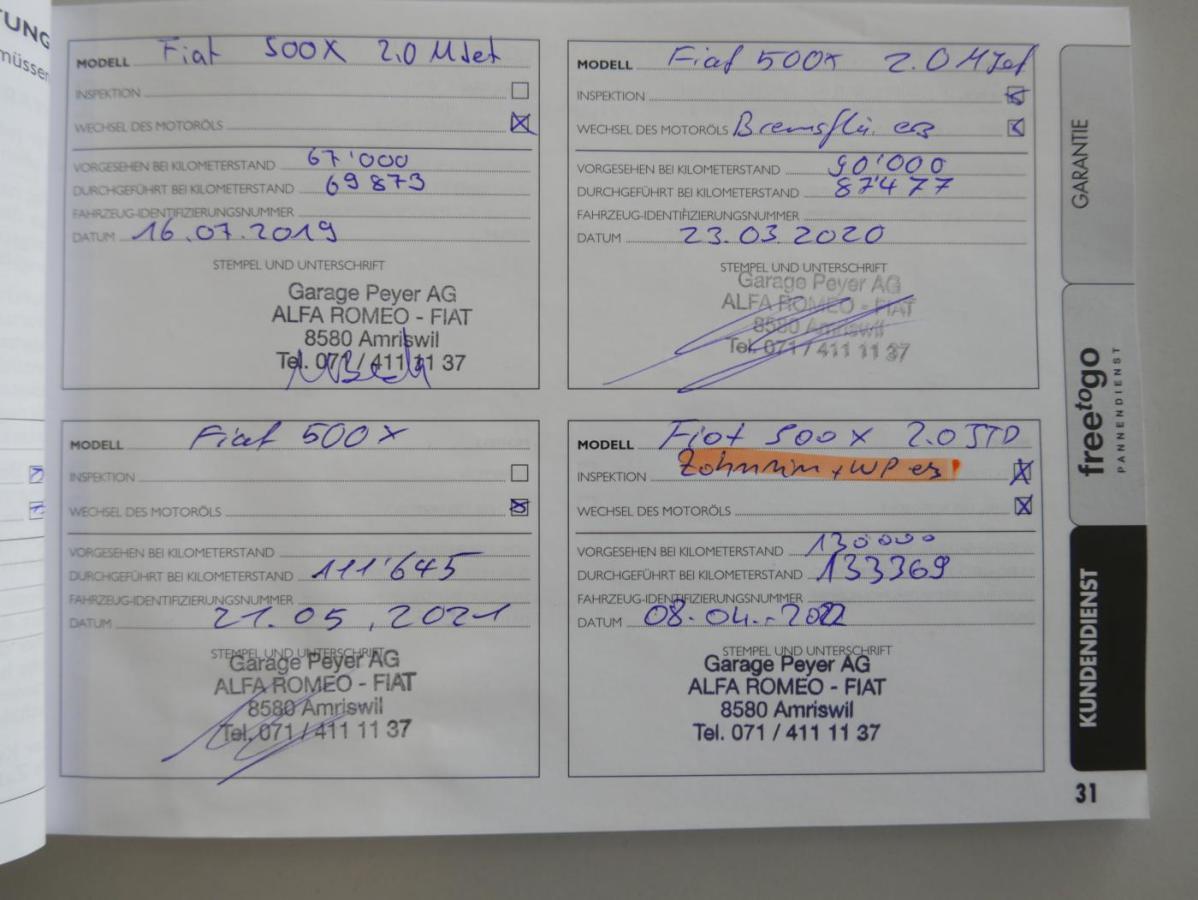 TUNG
müssen
MODELL Fiat 500X 2.0 MJet
INSPEKTION
WECHSEL DES MOTORÖLS
VORGESEHEN BEI KILOMETERSTAND 67'000
DURCHGEFÜHRT BEI KILOMETERSTAND 69873
FAHRZEUG-IDENTIFIZIERUNGSNUMMER
DATUM 16.07.2019
STEMPEL UND UNTERSCHRIFT
Garage Peyer AG
ALFA ROMEO - FIAT
8580 Amriswil
Tel. 071 / 411 11 37
MODELL Fiat 500X 2.0 MJet
INSPEKTION
WECHSEL DES MOTORÖLS Bremsflü. ers
VORGESEHEN BEI KILOMETERSTAND 90'000
DURCHGEFÜHRT BEI KILOMETERSTAND 87'477
FAHRZEUG-IDENTIFIZIERUNGSNUMMER
DATUM 23.03.2020
STEMPEL UND UNTERSCHRIFT
Garage Peyer AG
ALFA ROMEO - FIAT
8580 Amriswil
Tel. 071 / 411 11 37
MODELL Fiat 500X
INSPEKTION
WECHSEL DES MOTORÖLS
VORGESEHEN BEI KILOMETERSTAND
DURCHGEFÜHRT BEI KILOMETERSTAND 111'645
FAHRZEUG-IDENTIFIZIERUNGSNUMMER
DATUM 21.05.2021
STEMPEL UND UNTERSCHRIFT
Garage Peyer AG
ALFA ROMEO - FIAT
8580 Amriswil
Tel. 071 / 411 11 37
MODELL Fiat 500X 2.0 JTD
INSPEKTION Zahnrim + WP ers
WECHSEL DES MOTORÖLS
VORGESEHEN BEI KILOMETERSTAND 130000
DURCHGEFÜHRT BEI KILOMETERSTAND 133369
FAHRZEUG-IDENTIFIZIERUNGSNUMMER
DATUM 08.04.2022
STEMPEL UND UNTERSCHRIFT
Garage Peyer AG
ALFA ROMEO - FIAT
8580 Amriswil
Tel. 071 / 411 11 37
GARANTIE
freetogo
PANNENDIENST
KUNDENDIENST
31